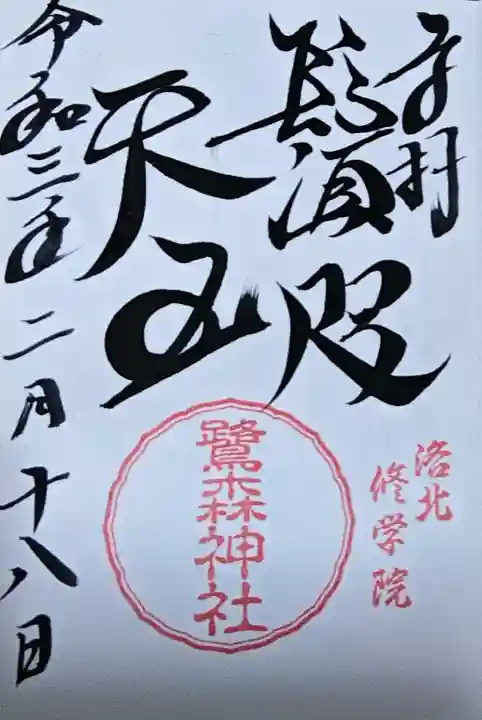 奉拝
鬚咫
天王
洛北
修学院
鷺森神社
令和三年二月十八日